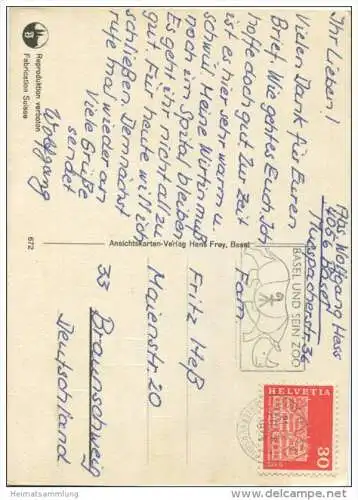 Ihr Lieben!
Vielen Dank für Euren
Brief. Wie geht es Euch. Ich
hoffe doch gut. Zur Zeit
ist es hier sehr warm u.
schwül. Meine Wirtin muß
noch im Spital bleiben
Es geht ihr nicht all zu
gut. Für heute will ich
schließen. Demnächst
rufe mal wieder an
Viele Grüße
sendet
Wolfgang
Reproduktion verboten
Fabrication Suisse
672
Ansichtskarten-Verlag Hans Frey, Basel
Abs. Wolfgang Hess
4056 Basel
Muespacherstr. 36
BASEL UND SEIN ZOO
HELVETIA
30
Fam.
Fritz Heß
Maienstr. 20
33 Braunschweig
Deutschland
Heimatsammlung